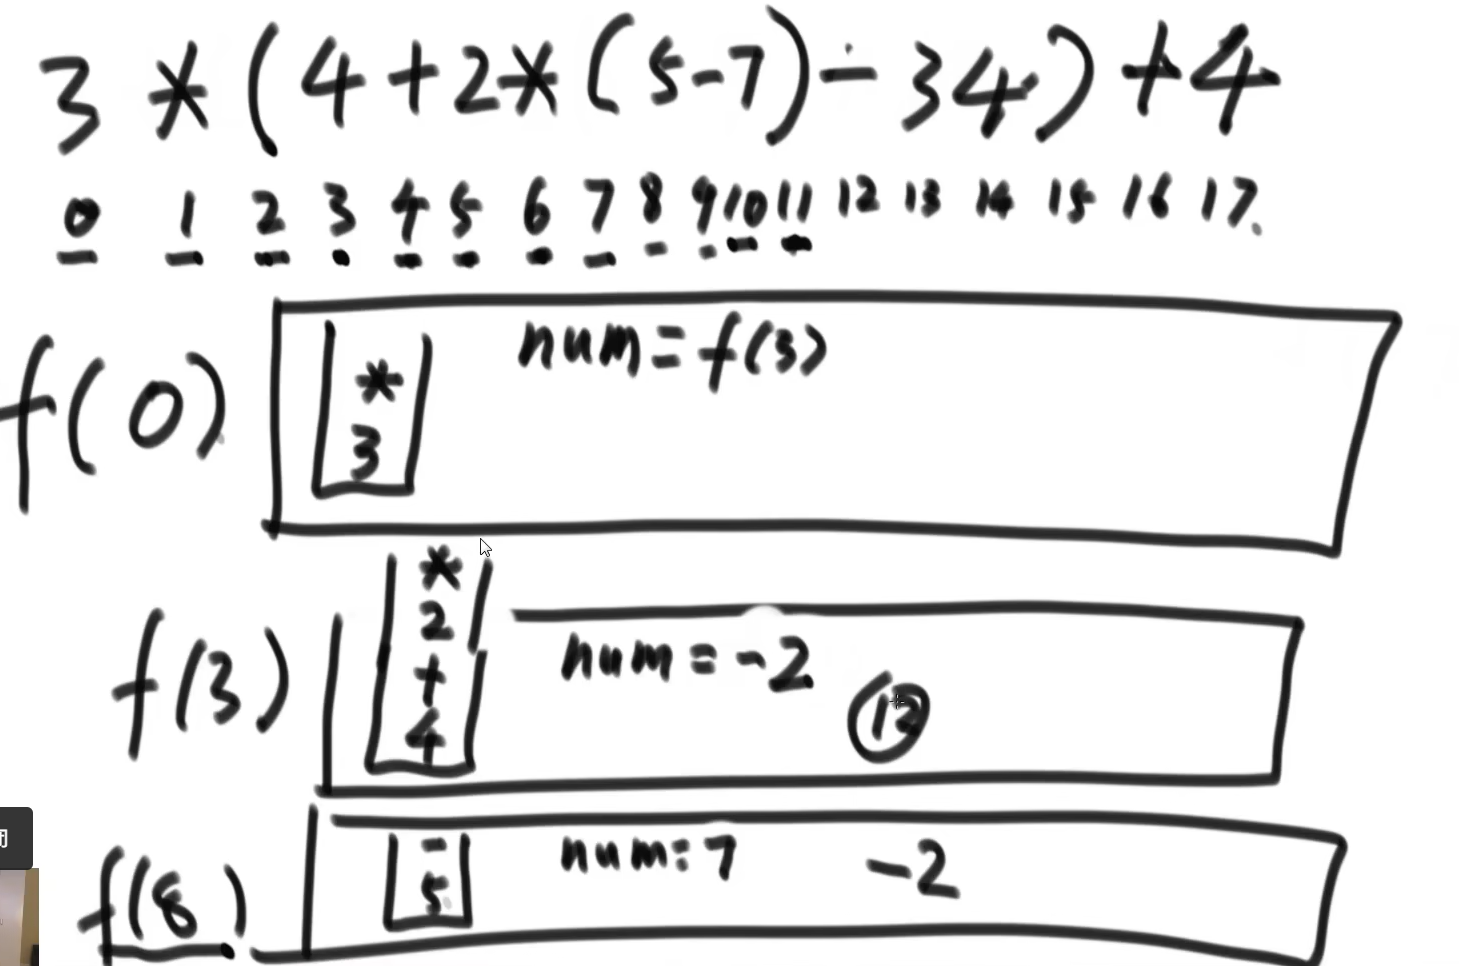 3 * ( 4 + 2 * ( 5 - 7 ) - 34 ) + 4
0 1 2 3 4 5 6 7 8 9 10 11 12 13 14 15 16 17
num = f(3)
*
3
f(0)
*
2
+
4
num = -2
12
f(3)
-
5
num: 7
-2
f(8)